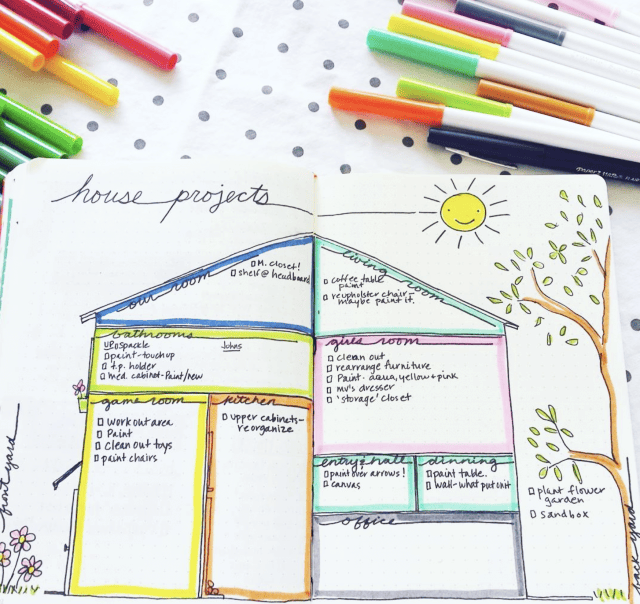 house projects
our room
M. closet!
shelf @ headboard
living room
coffee table
paint
reupholster chair -
maybe paint it.
bathrooms
UP spackle
Johns
paint-touch up
t.p. holder
med. cabinet-Paint/new
girls room
clean out
rearrange furniture
Paint-aqua, yellow + pink
mv's dresser
'storage' closet
game room
work out area
Paint
clean out toys
paint chairs
kitchen
upper cabinets-
reorganize
entry & hall
paint over arrows!
canvas
dinning
paint table.
wall-what put on it
office
front yard
plant flower
garden
sandbox
back yard